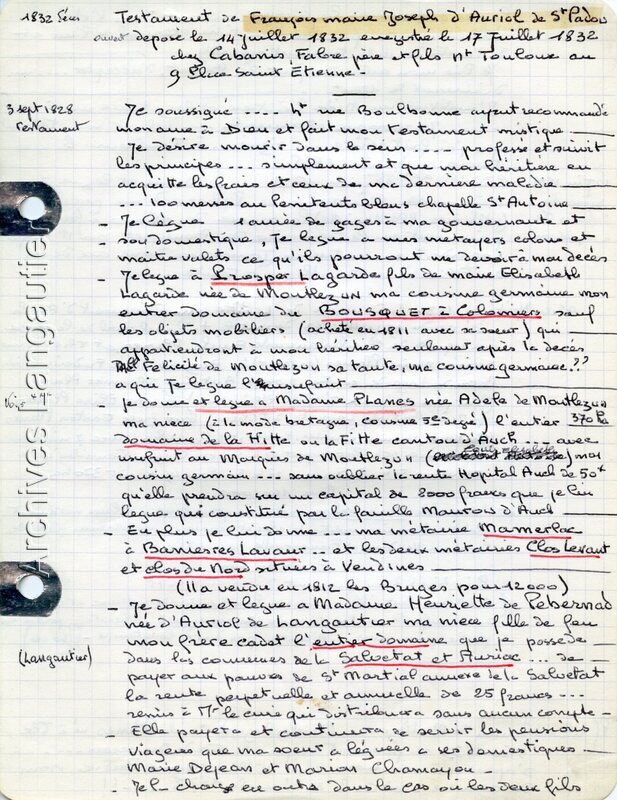 1832 Testament de François marie Joseph d'Auriol de St Padou
ouvert deposé le 14 juillet 1832 enregistré le 17 juillet 1832
chez Cabanis, Fabre père et fils nt Toulouse au
9 Place Saint Etienne -
3 sept 1828 Je soussigné .... 4t rue Boulbonne ayant recommandé
testament mon ame à Dieu et fait mon testament mistique
Je désire mourir dans le sein .... professé et suivit
les principes ... simplement et que mon héritière en
acquitte les frais et ceux de ma dernière maladie
... 100 messes au Penitents blens chapelle St Antoine
- Je lègue 1 année de gages à ma gouvernante et
- son domestique, Je legue a mes metayers colons et
maitre valets ce qu'ils pourront me devoir à mon decès
- Je legue à Prosper Lagarde fils de marie Elisabeth
Lagarde née de Montlezun ma cousine germaine mon
entier domaine du BOUSQUET à Colomiers sauf
les objets mobiliers (acheté en 1811 avec sa soeur) qui
appartiendront à mon héritière seulement après le decès
Felicité de Montlezun sa tante, ma cousine germaine??
a qui Je legue l'usufruit
- Je donne et legue a Madame PLANES née Adele de Montlezun
ma niece (à la mode bretagne, cousine 5e degé) l'entier 370 ha
domaine de la Hitte ou la Fitte canton d'Auch ... avec
usufruit au Marquis de Montlezun ( ) mon
cousin germain ... sans oublier la rente Hopital Auch de 50
qu'elle prendra sur un capital de 2000 francs que je lui
legue qui constitué par la famille Mauroux d'Auch
- En plus je lui donne ... ma métairie Mamerlac
à Banieres Lavaur .. et les deux métairies Clos Levant
et clos du Nord situées à Vendines
(Il a vendu en 1812 les Bruges pour 12000)
- Je donne et legue a Madame Henriette de Pebernad
née d'Auriol de Langautier ma niece fille de feu
mon frère cadet l'entier domaine que je possede
(Langautier) dans les communes de la Salvetat et Auriac ... de
payer aux pauvres de St Martial annexe de la Salvetat
la rente perpetuelle et annuelle de 25 francs ...
remis à Mr le curé qui distribuera sans aucun compte -
- Elle payera et continuera de servir les pensions
viageres que ma soeur a léguées a ses domestiques
Marie Dejean et Marion Chamayou -
- Je l charge en outre dans le cas où les deux fils
Archives Langautier